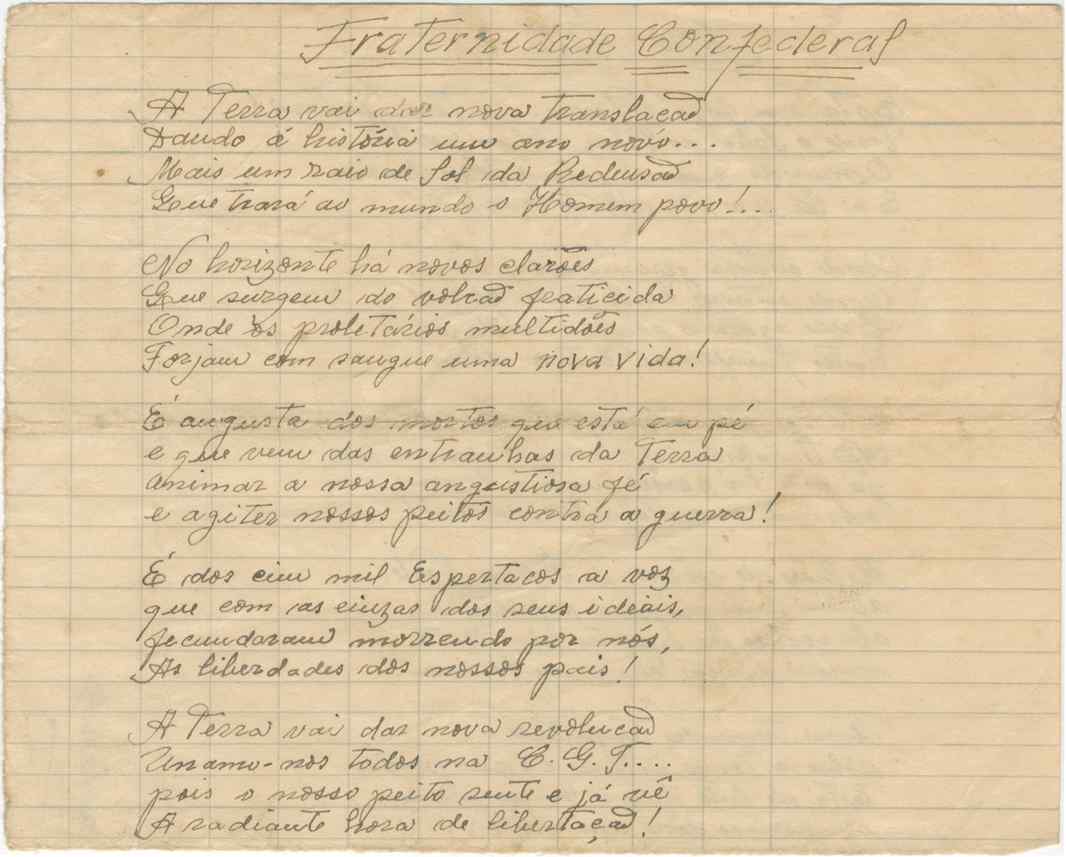 Fraternidade Confederal
A Terra vai dar nova translação
Dando á história um ano novo...
Mais um raio de Sol da Redensão
Que trará ao mundo o Homem povo!...
No horizonte há novos clarões
Que surgem do volcão fraticida
Onde os proletários multidões
Forjam com sangue uma nova vida!
É augusta dos mortos que está em pé
e que vem das entranhas da Terra
animar a nossa angustiosa fé
e agiter nossos peitos contra a guerra!
É dos cim mil Espertacos a voz
que com as cinzas dos seus ideais,
fecundaram morrendo por nós,
As liberdades dos nossos pais!
A Terra vai dar nova revolução
Unamo-nos todos na C.G.T....
pois o nosso peito sente e já vê
A radiante hora de libertação!